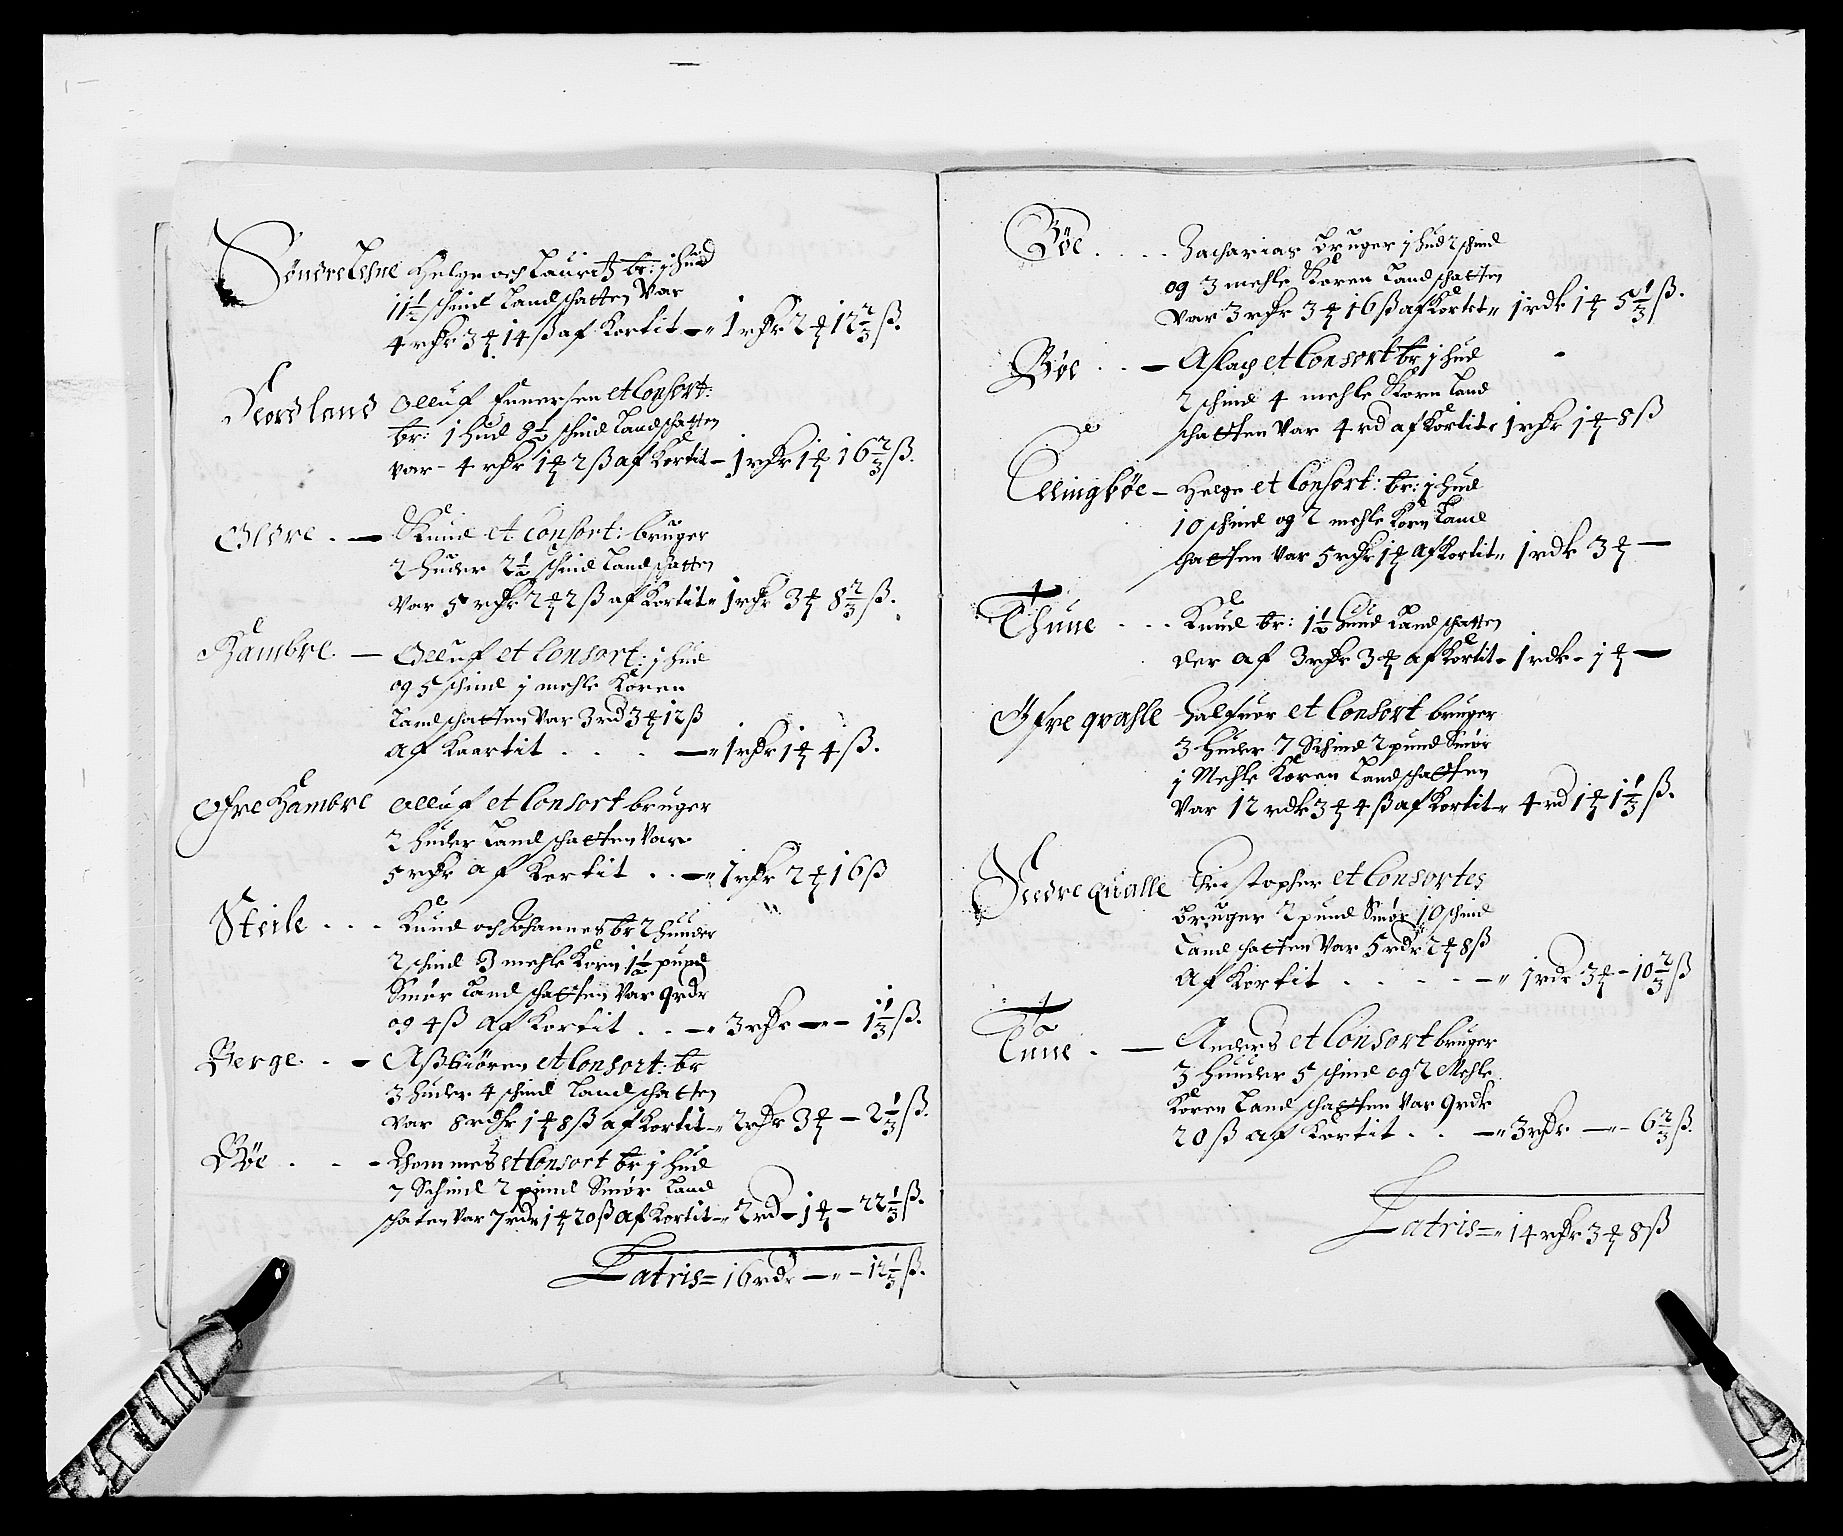 Søndre Lesne Helge och Lauritz br: j hud
11½ schind Landschatten Var
4 rdr 3 ₰ 14 ß af Kortit — 1 rdr 2 ₰ 12⅔ ß.
Nordland Olluf Enersen et Consort:
br: 1 hud 8½ schind Landschatten
var - 4 rdr 1 ₰ 2 ß af Kortit — 1 rdr 1 ₰ 16⅔ ß.
Oldre . — Knud et Consort: bruger
2 huder 2½ schind Landschatten
Var 5 rdr 2 ₰ 2 ß af Kortit „ 1 rdr 3 ₰ 8⅔ ß.
Hambre. — Olluf et Consort: j hud
og 5 schind j mehle Koren
Landschatten Var 3 rd 3 ₰ 12 ß
af Kaartit . . . —„ 1 rdr 1 ₰ 4 ß.
Øfre Hambre Olluf et Consort bruger
2 huder Landschatten Var
5 rdr af Kortit . . —„ 1 rdr 2 ₰ 16 ß
Steile . . . Knud och Johannes br 2 huuder
2 schind 3 mehle Korn 1½ pund
Smør Landschatten Var 9 rdr
og 4 ß af Kortit . . —„ 3 rdr — — 1⅓ ß.
Berge. . — Aßbiøren et Consort: br
3 huder 4 schind Landschatten
Var 8 rdr 1 ₰ 8 ß af Kortit —„ 2 rdr 3 ₰ — 2⅓ ß.
Bøe . . . - Thommes et Consort br j hud
7 Schind 2 pund Smør Land
schaten Var 7 rdr 1 ₰ 20 ß af Kortit —„ 2 rd — 1 ₰ — 22⅓ ß.
Latris = 16 rdr —„ — 12⅓ ß.
Bøe . . . . Zacharias bruger j hud 2 schind
og 3 mehle Koren Landschatten
Var 3 rdr 3 ₰ 16 ß af Kortet „ 1 rdr 1 ₰ 5⅓ ß.
Bøe . . — Aslach et Consort br j hud
2 schind 4 mehle Korn Land
schatten Var 4 rd af Kortit „ 1 rdr 1 ₰ 8 ß
Ellingbøe — Helge et Consort: br: j hud
10 schind og 2 mehle Korn Land
schatten Var 5 rdr 1 ₰ af Kortit „ 1 rdr 3 ₰ —
Thune . . . Knud br: 1½ huud Landschatten
der af 3 rdr 3 ₰ af Kortit — 1 rdr - 1 ₰ —
Øfre qvahle Halfuor et Consort bruger
3 huder 7 Schind 2 pund Smør
j Mehle Koren Landschatten
Var 12 rdr 3 ₰ 4 ß af Kortit „ 4 rd 1 ₰ 1⅓ ß.
Nedre Qualle Christopher et Consortes
Bruger 2 pund Smør 10 schind
Landschatten Var 5 rdr 2 ₰ 8 ß
af Kortit . . . . —„ 1 rdr 3 ₰ — 10⅔ ß
Tune . — Anders et Consort bruger
3 huuder 5 schind og 2 Mehle
Koren Landschatten Var 9 rdr
20 ß af Kortit . . —„ 3 rdr —„ — 6⅔ ß.
Latris = „ 14 rdr 3 ₰ 8 ß